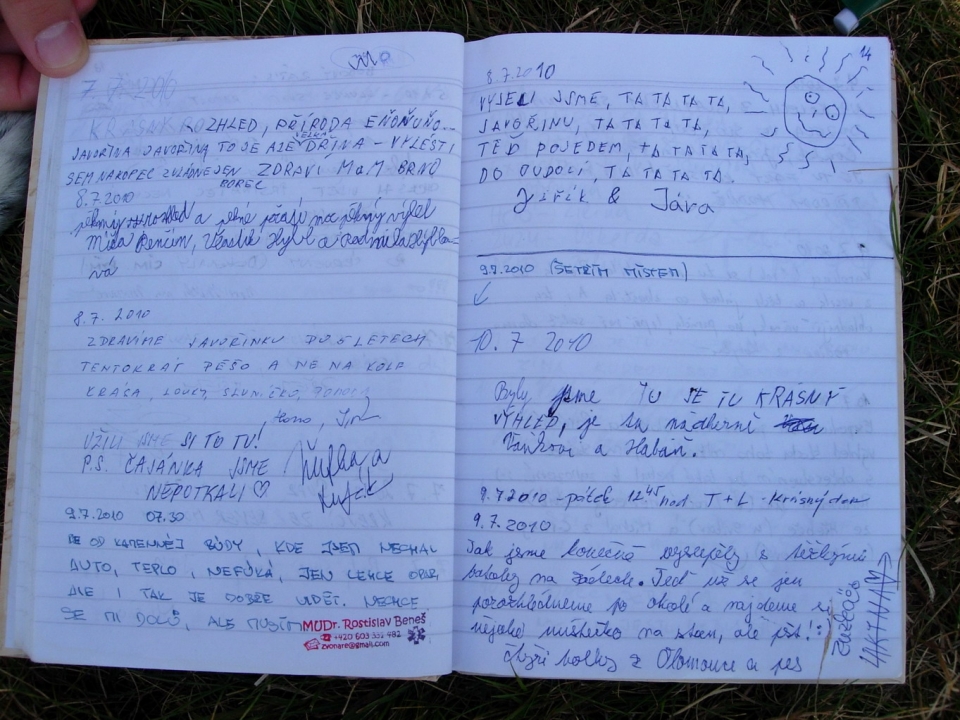 KRÁSNK ROZHLED, PŘÍRODA EŇOŇUŇO...
JAVOŘINA JAVOŘINA TO JE ALE VELKÁ DŘINA - VYLESTI
SEM NAKOPEC ZVLÁDNE JEN BOREC ZDRAVÍ M a M BRNO
8.7.2010
pěkný a pěkné na pěkný výhled
Míša a Radmila
vá
8.7. 2010
ZDRAVÍME JAVOŘINKU PO 5 LETECH
TENTOKRÁT PĚŠO A NE NA KOLE
KRÁSA, LOUKY, SLUNÍČKO, POHODA
UŽILI JSME SI TO TU!
P.S. ČAJÁNKA JSME
NEPOTKALI ♡
9.7.2010 07.30
OD KAMENNÉJ BÚDY, KDE JSEM NECHAL
AUTO, TEPLO, NEFÚKÁ, JEN LEHCE OPAR,
ALE I TAK JE DOBŘE VIDĚT. NECHCE
SE MI DOLŮ, ALE MUSÍM
MUDr. Rostislav Beneš
+420 603 332 482
zvonare@gmail.com
14
8.7.2010
VYJELI JSME, TA TA TA TA,
JAVOŘINU, TA TA TA TA,
TĚĎ POJEDEM, TA TA TA TA,
DO ÚDOLÍ, TA TA TA TA.
Jiřík & Jára
9.7.2010 (ŠETŘÍM MÍSTEM)
10. 7 2010
Byly jsme TU JE TU KRÁSNÝ
VÝHLED, je tu nádherně
a Habáň.
9.7.2010 - pátek 12 45 hod. T + L - krásný den
9.7.2010
Tak jsme konečně vyšlapaly s těžkými
batohy na zádech. Teď už se jen
porozhlédneme po okolí a najdeme si
nějaké místečko na stan, ale pšt! :)
Čtyři holky z Olomouce a pes